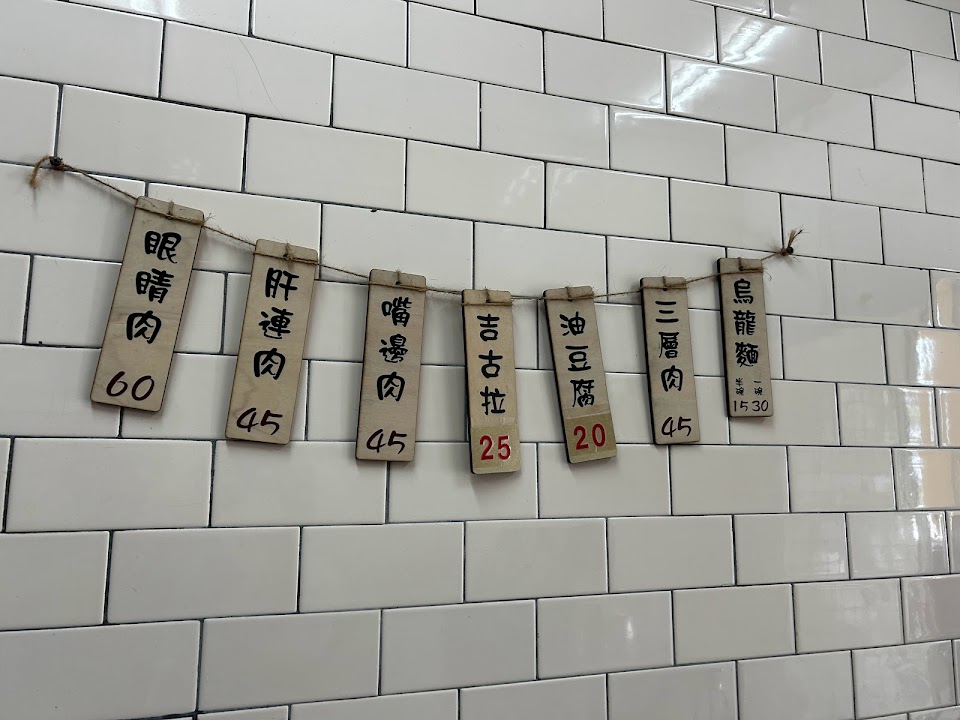 眼睛肉
60
肝連肉
45
嘴邊肉
45
吉古拉
25
油豆腐
20
三層肉
45
烏龍麵
一碗 30
15